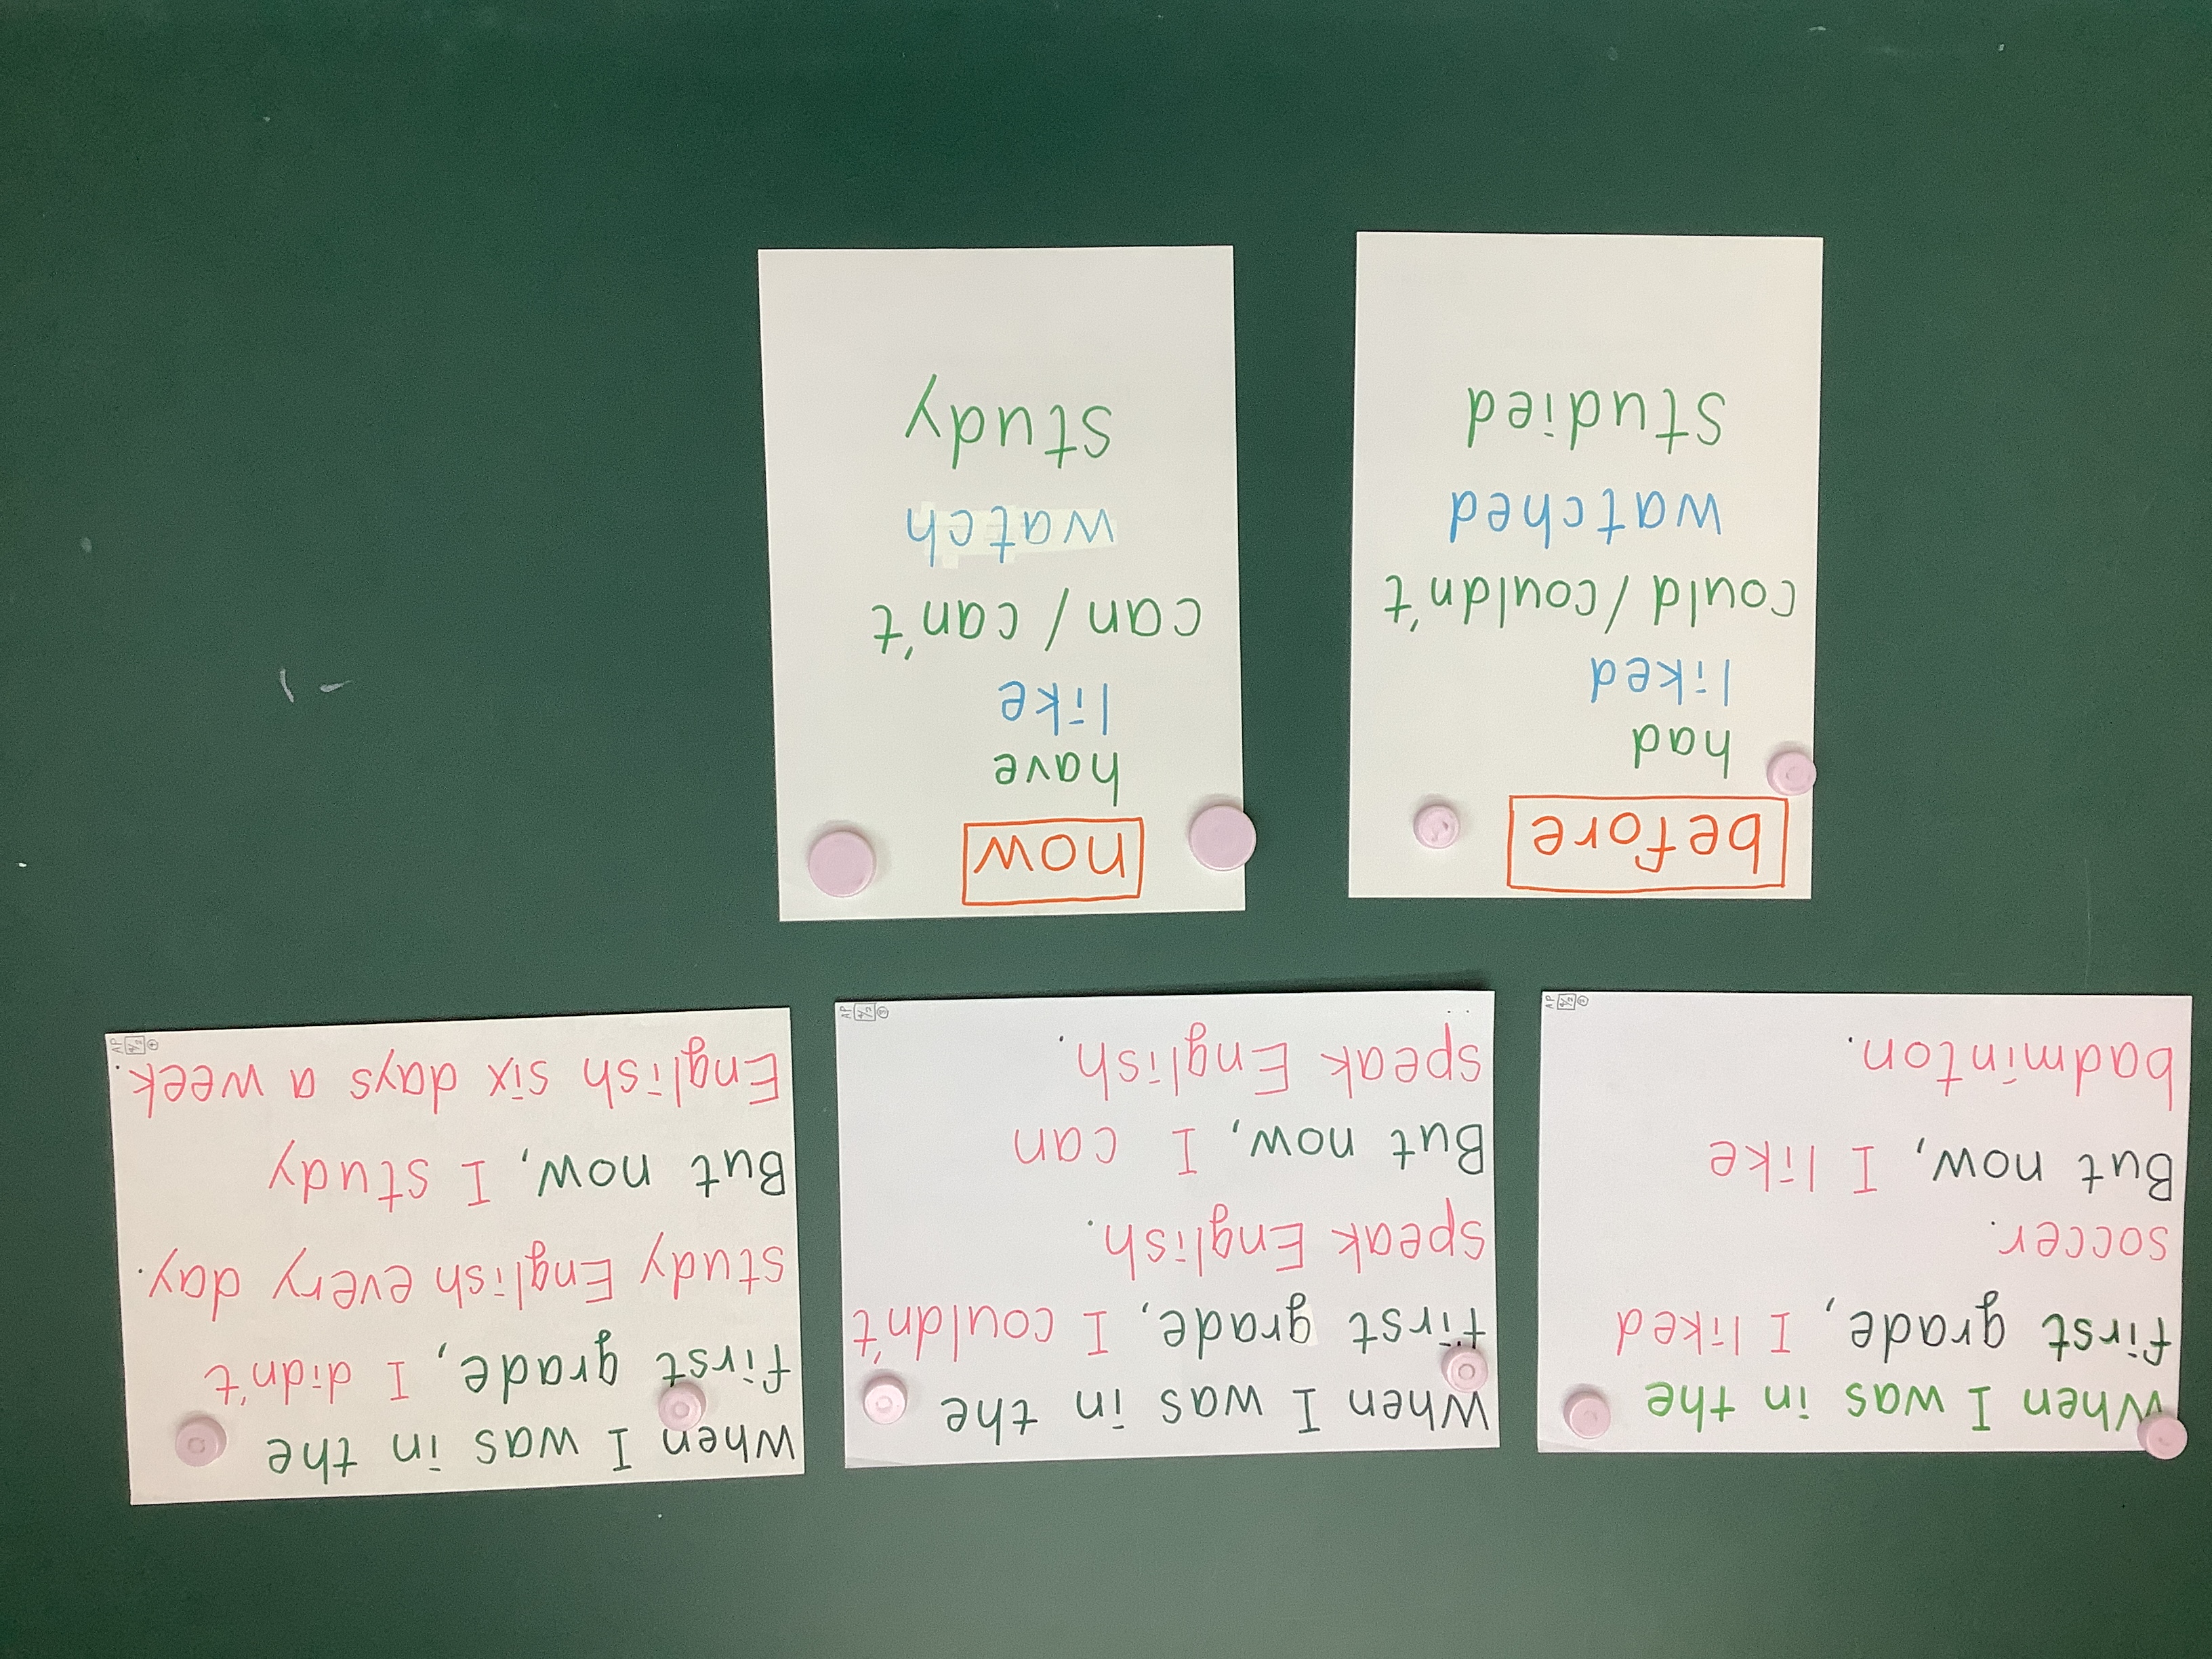 When I was in the
first grade, I liked
soccer.
But now, I like
badminton.
When I was in the
first grade, I couldn't
speak English.
But now, I can
speak English.
When I was in the
first grade, I didn't
study English every day.
But now, I study
English six days a week.
before
had
liked
could / couldn't
watched
studied
now
have
like
can / can't
watch
study